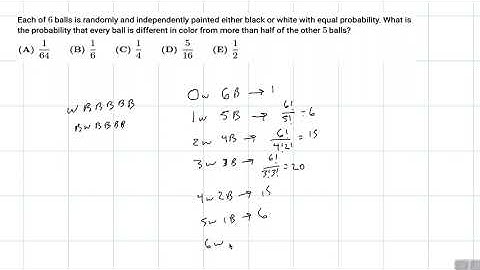 Each of 6 balls is randomly and independently painted either black or white with equal probability. What is
the probability that every ball is different in color from more than half of the other 5 balls?
(A) 1/64 (B) 1/6 (C) 1/4 (D) 5/16 (E) 1/2
W B B B B B
B W B B B B
0w 6B → 1
1w 5B → 6!/5! = 6
2w 4B → 6!/4!2! = 15
3w 3B → 6!/3!3! = 20
4w 2B → 15
5w 1B → 6
6w